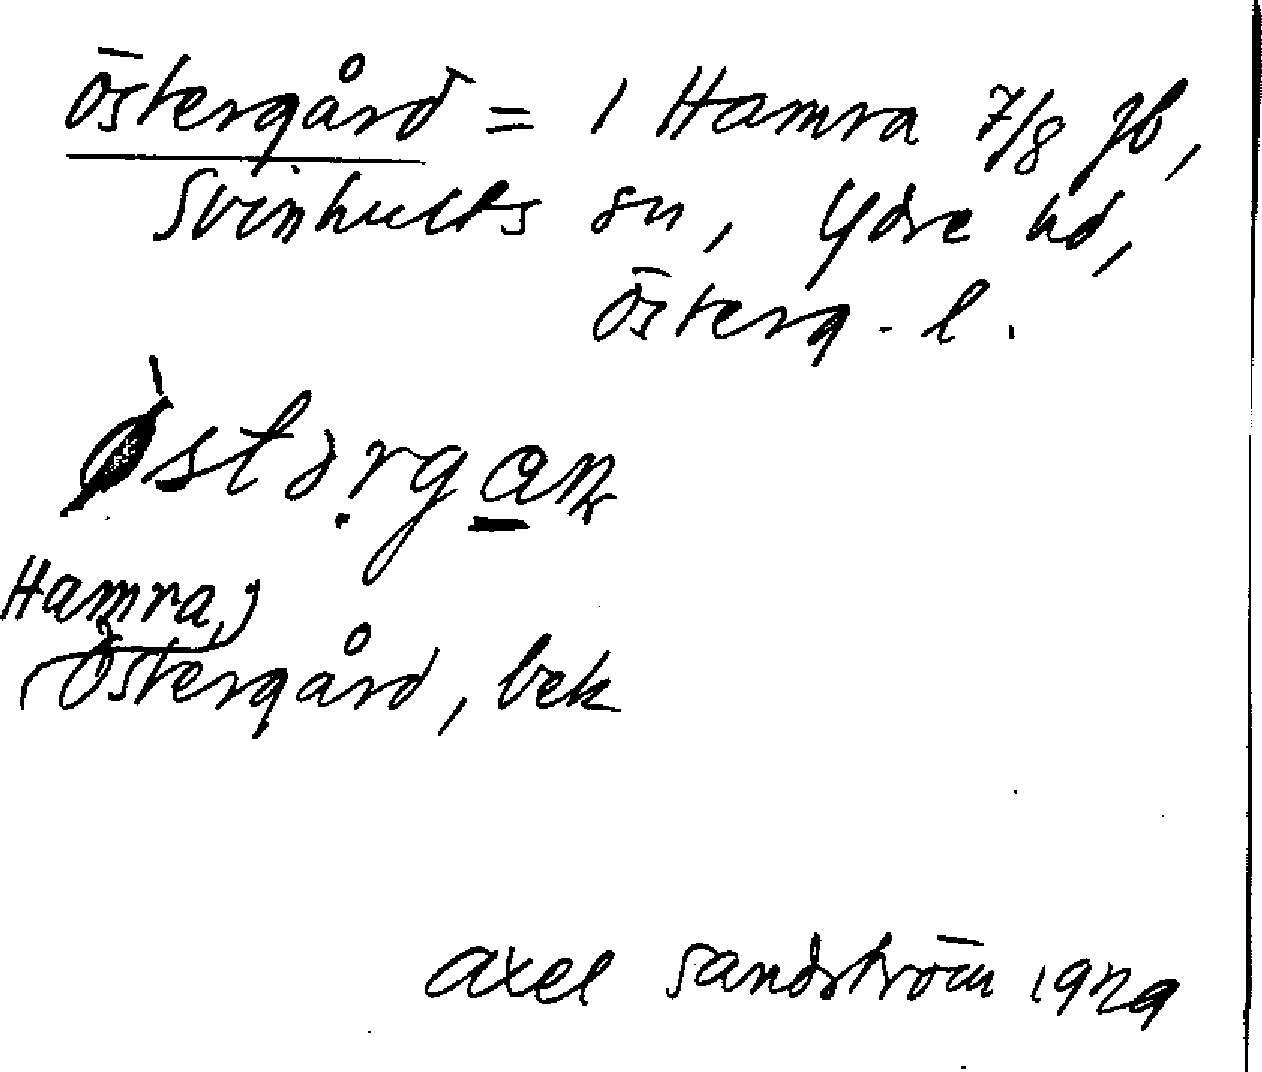 Östergård = 1 Hamra 7/8 jb,
Svinhults sn, Ydre hd,
Österg. l.
Hamra,
Östergård, bek
Axel Sandström 1929